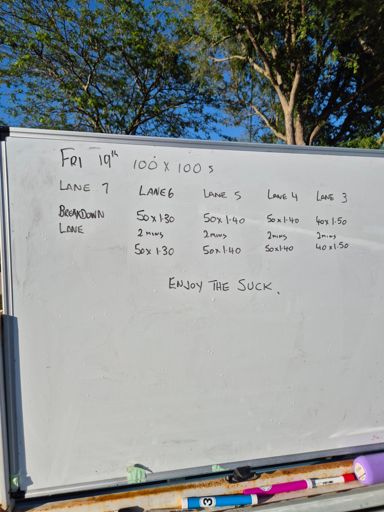 FRI 19th 100 X 100s
LANE 7 LANE 6 LANE 5 LANE 4 LANE 3
BREAKDOWN 50 x 1.30 50 x 1.40 50 x 1.40 40 x 1.50
LANE 2 mins 2 mins 2 mins 2 mins
50 x 1.30 50 x 1.40 50 x 1.40 40 x 1.50
ENJOY THE SUCK.
3